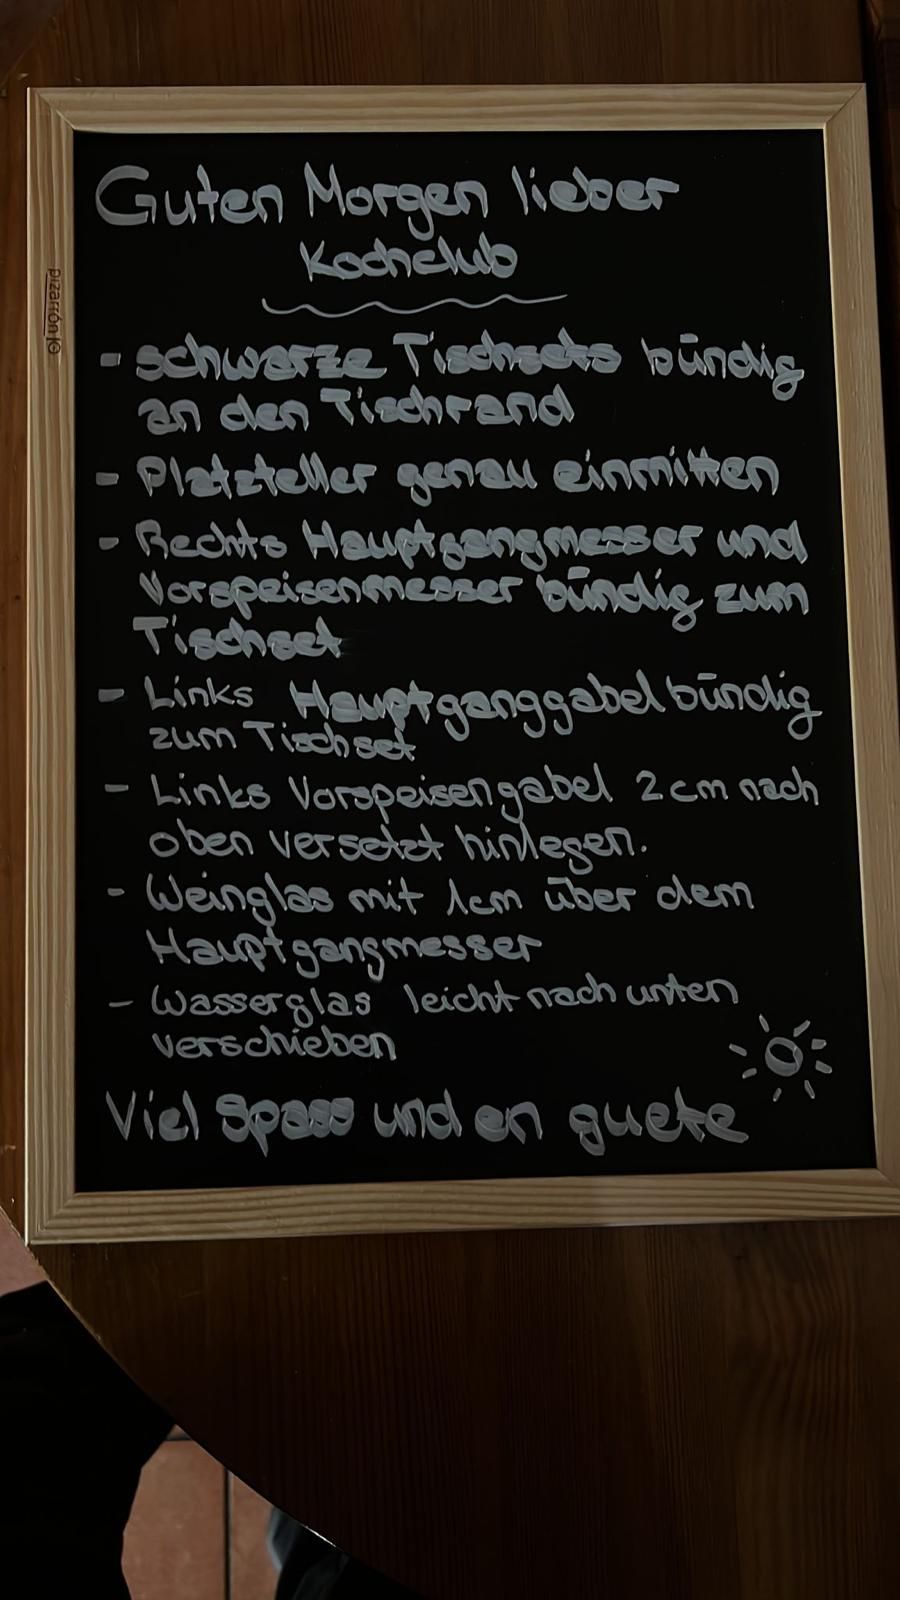 Guten Morgen lieber
Kochclub
- schwarze Tischsets bündig
an den Tischrand
- Platzteller genau einmitten
- Rechts Hauptgangmesser und
Vorspeisenmesser bündig zum
Tischset
- Links Hauptganggabel bündig
zum Tischset
- Links Vorspeisengabel 2cm nach
oben versetzt hinlegen.
- Weinglas mit 1cm über dem
Hauptgangmesser
- Wasserglas leicht nach unten
verschieben
Viel Spass und en guete
pizarrón